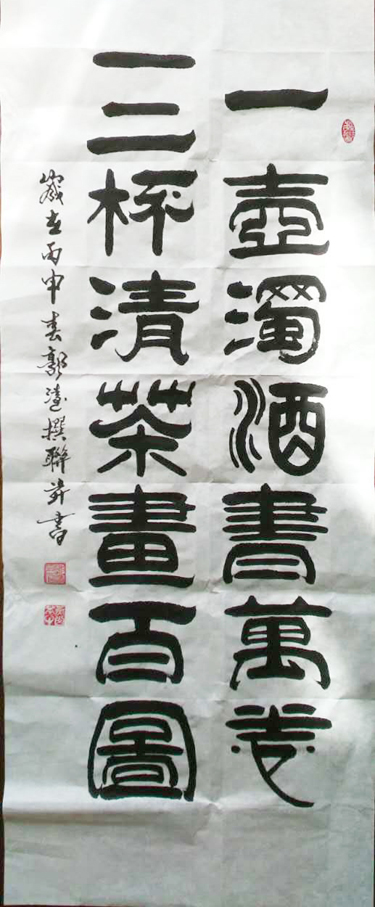 一壺濁酒書萬卷
三杯清茶畫百圖
歲在丙申春郭達撰聯并書